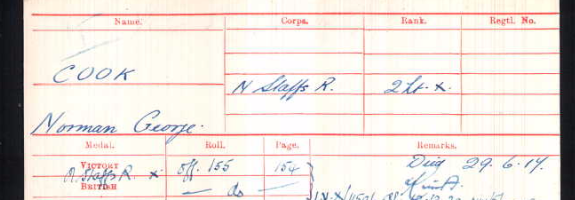 Name. Corps. Rank. Regtl. No.
COOK
N Staffs R. 2 Lt. x.
Norman George.
Medal. Roll. Page. Remarks.
VICTORY Off. 155 154 Died 29.6.17.
N. Staffs R. x
BRITISH — do —